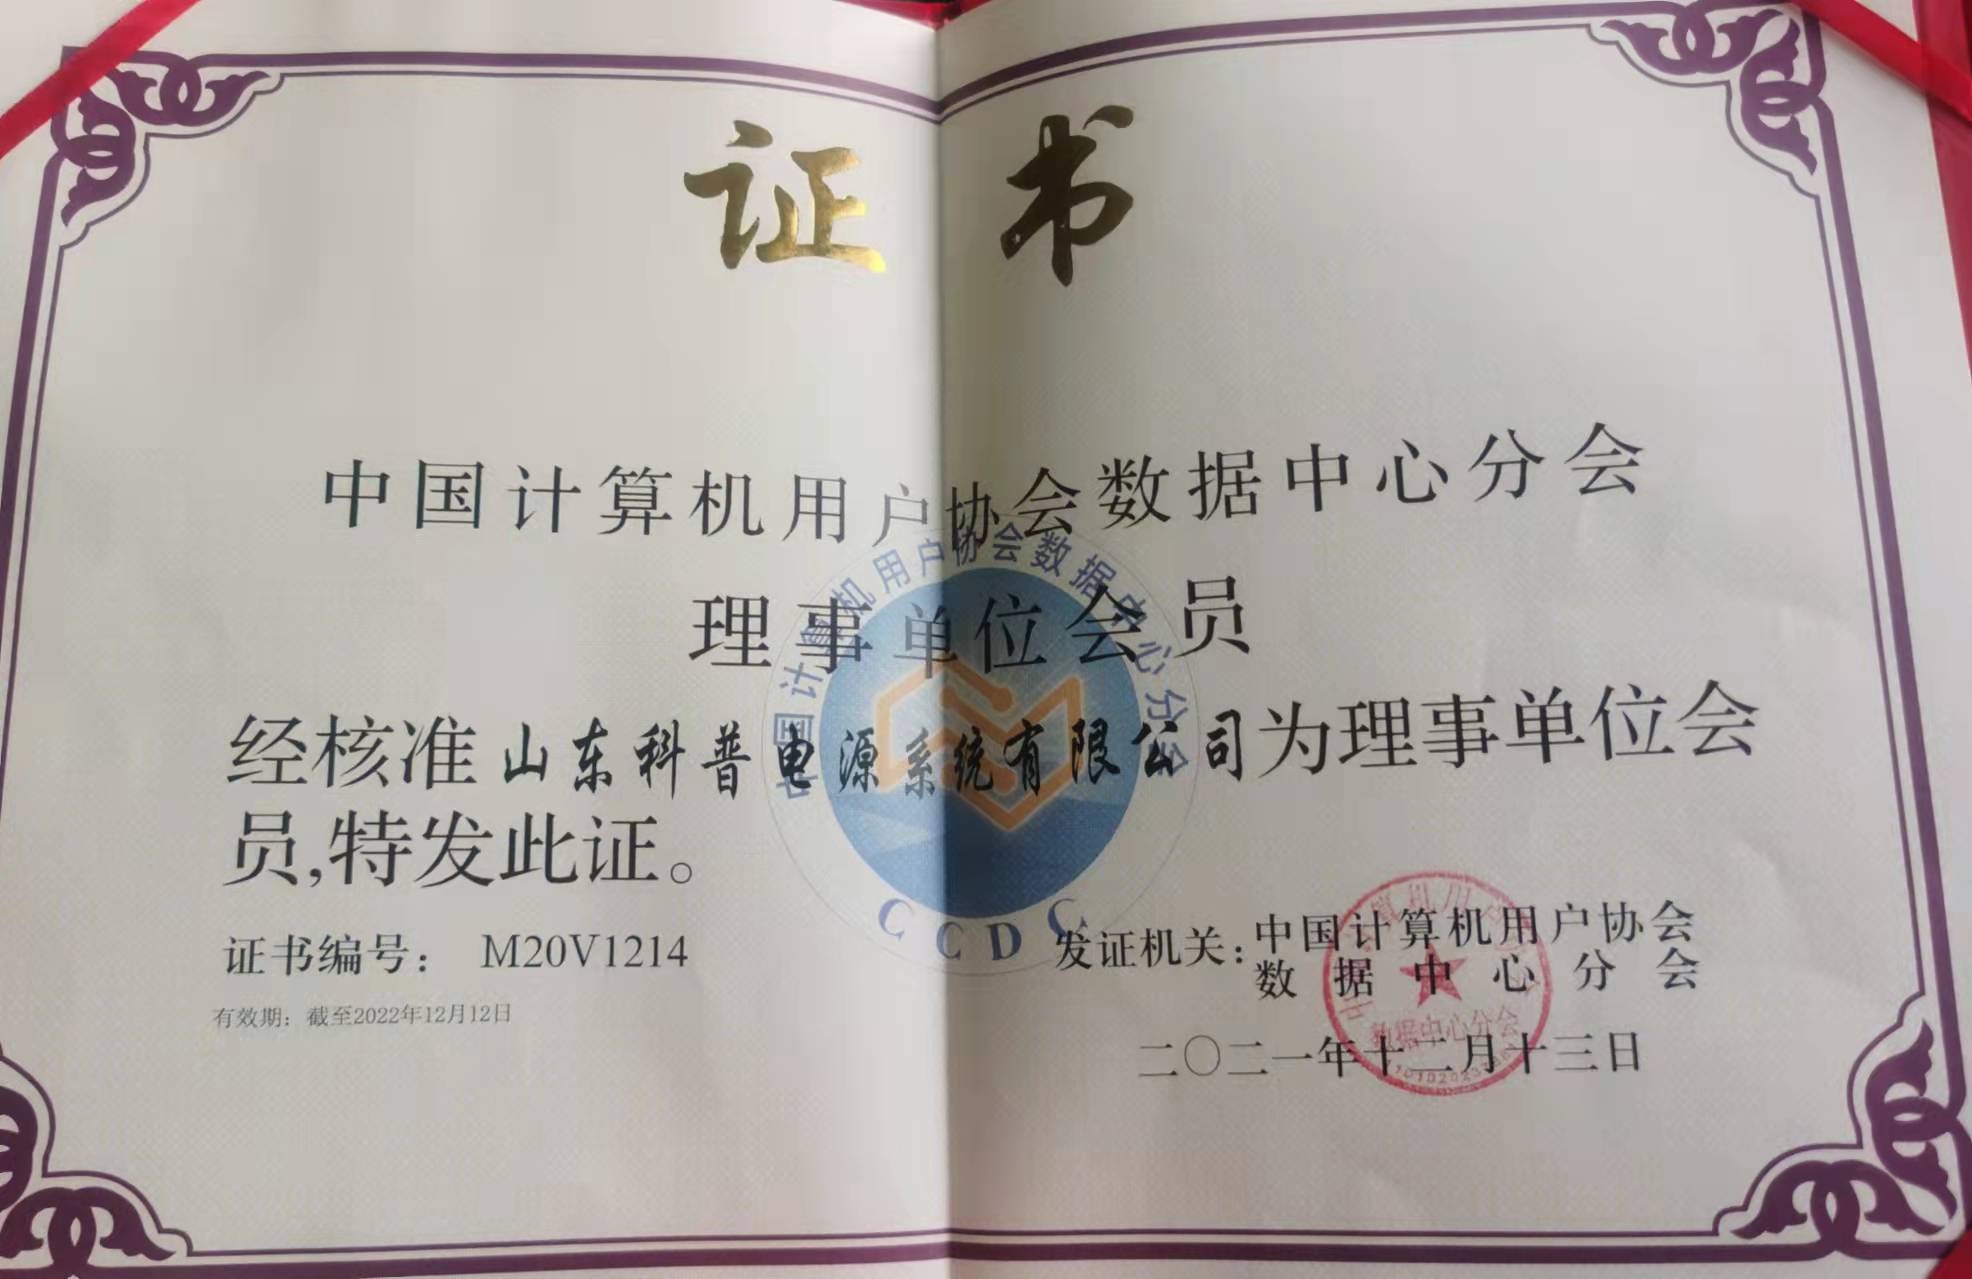 证书
中国计算机用户协会数据中心分会
理事单位会员
经核准山东科普电源系统有限公司为理事单位会
员,特发此证。
中国计算机用户协会数据中心分会
CCDC
证书编号： M20V1214
有效期：截至2022年12月12日
发证机关：中国计算机用户协会
数据中心分会
数据中心分会
二〇二一年十二月十三日